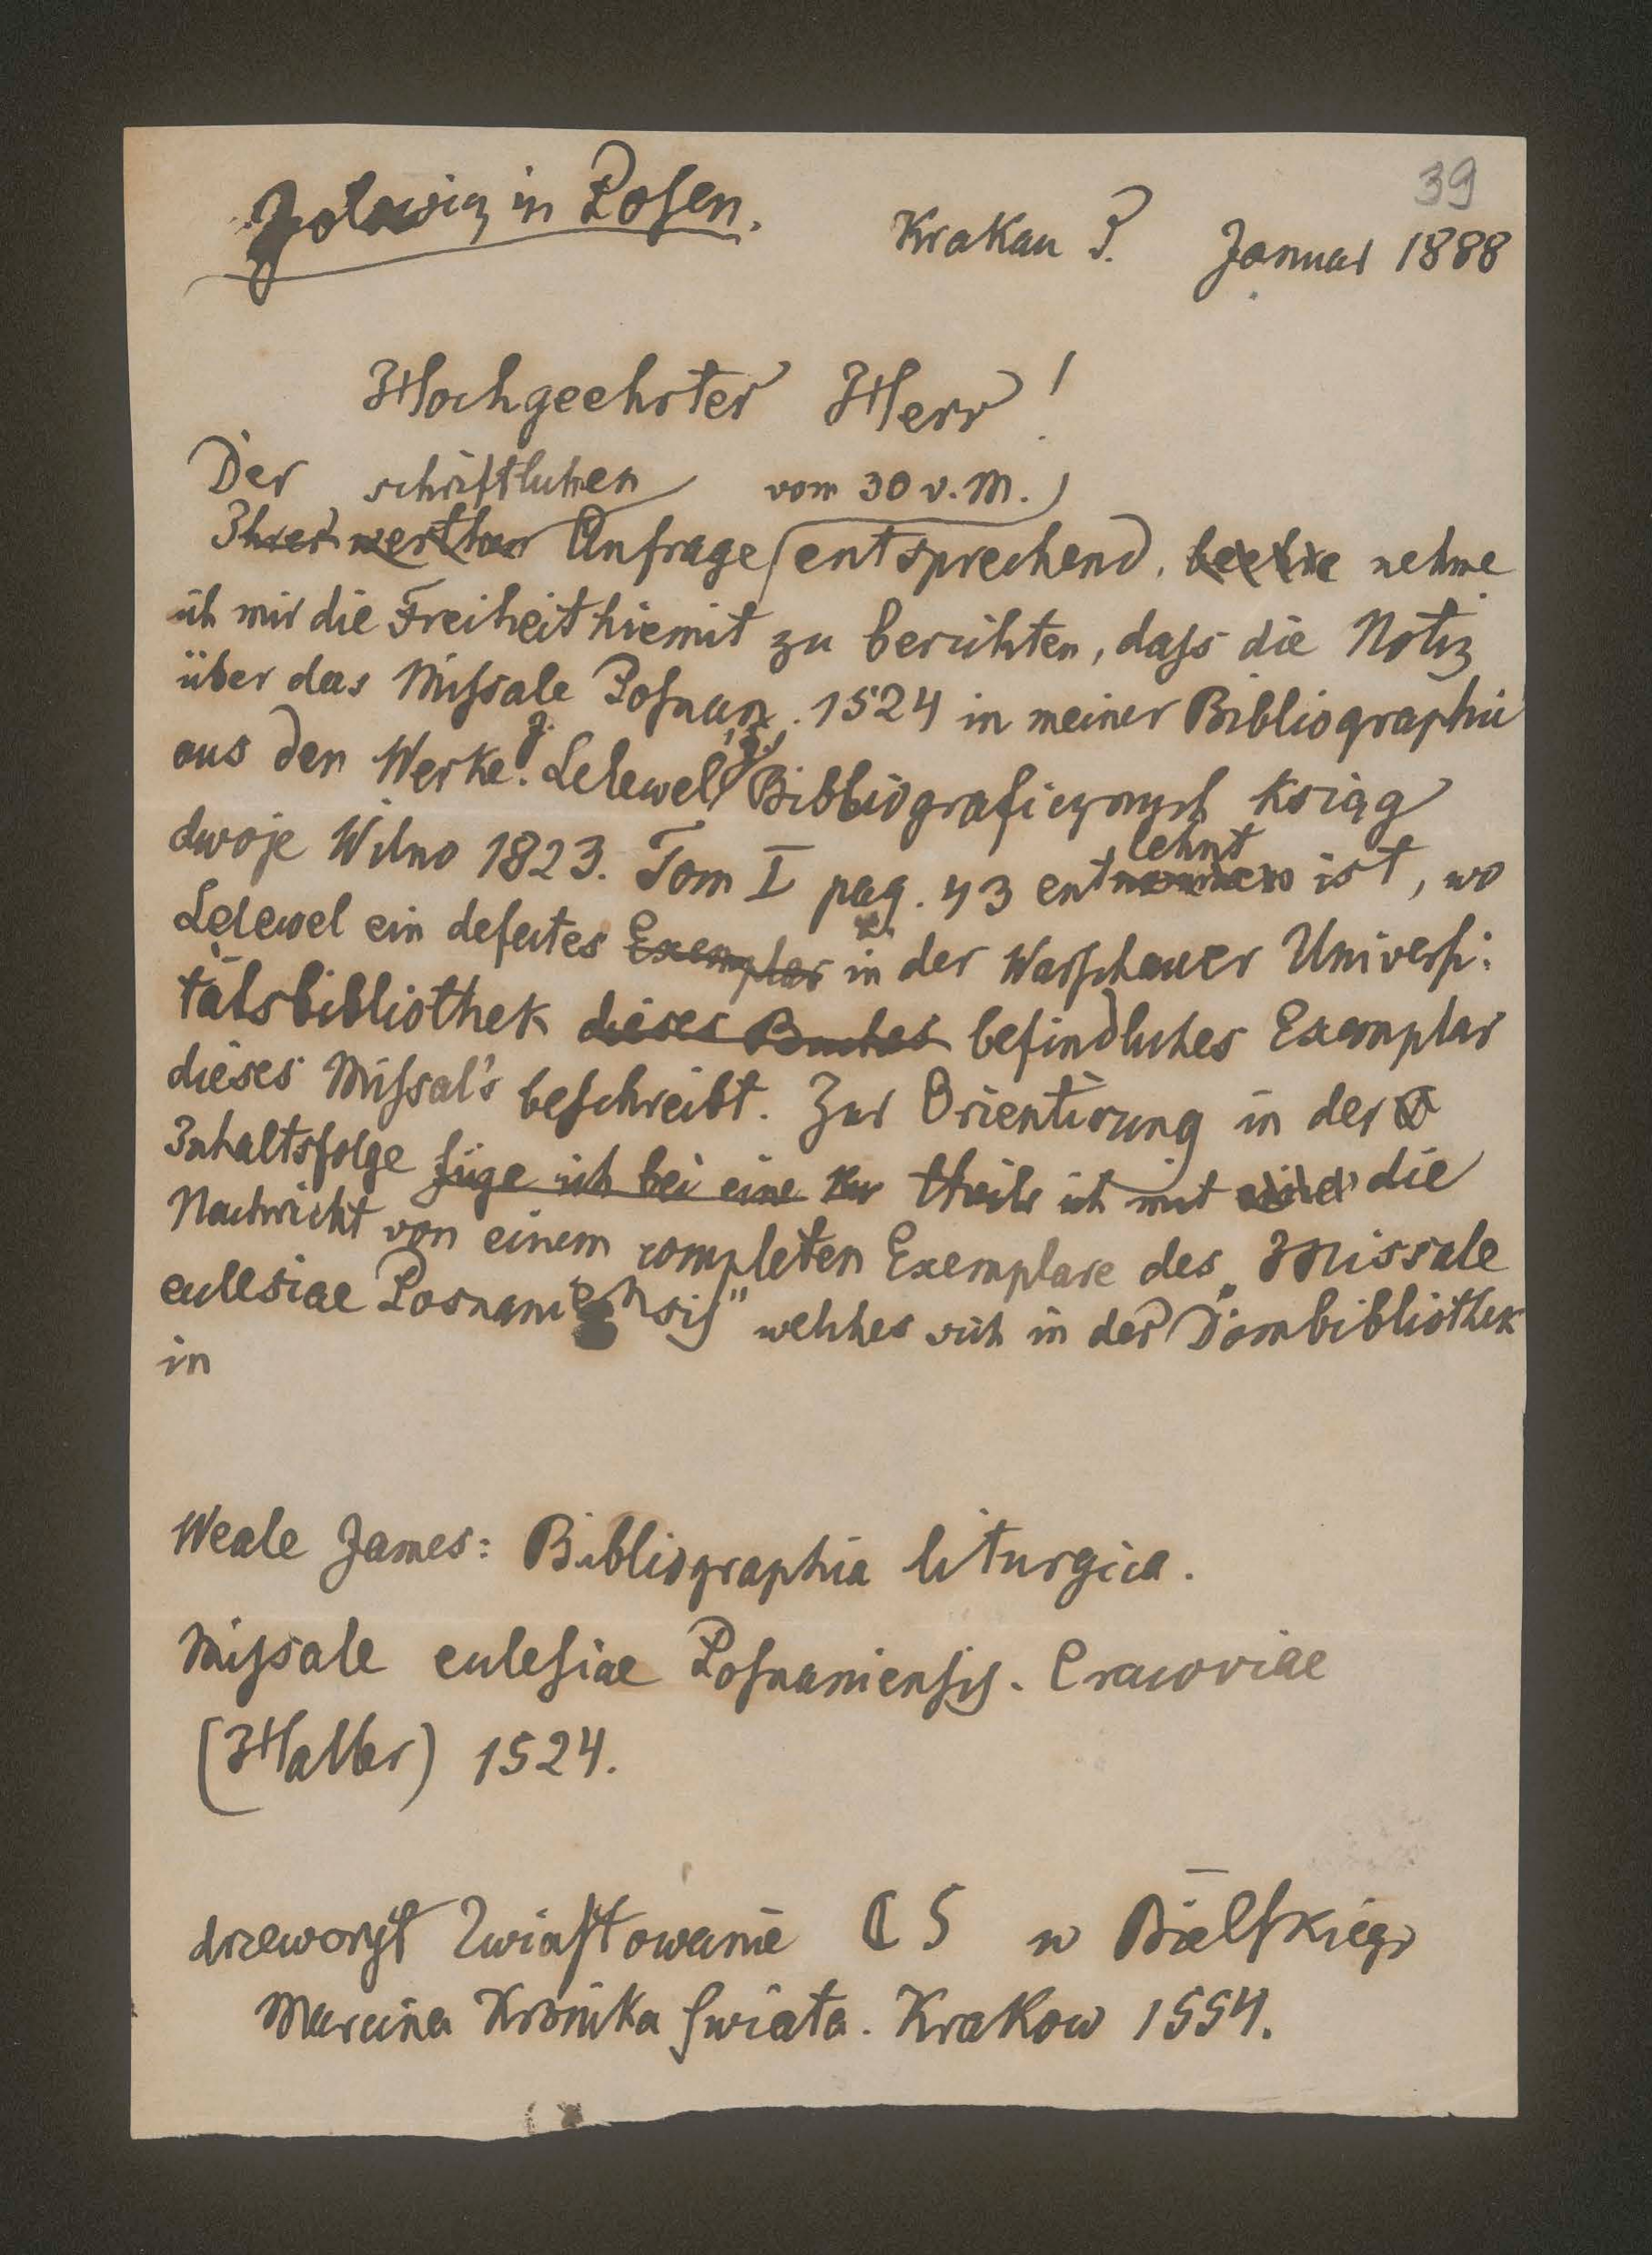 39
in Posen.
Krakau 3. Januar 1888
Hochgeehrter Herr!
Der schriftlichen vom 30 v. M.
Ihrer werthen Anfrage entsprechend, nehme
ich mir die Freiheit hiemit zu berichten, daſs die Notiz
über das Miſsale Poſnan. 1524 in meiner Bibliographie
aus den Werke: J. Lelewel's Bibliograficznych ksiąg
dwoje Wilno 1823. Tom I pag. 43 entlehnt ist, wo
Lelewel ein defectes Exemplar in der Warſchauer Univerſi-
tätsbibliothek dieses Buches befindliches Exemplar
dieses Miſsal's beſchreibt. Zur Orientirung in der
Inhaltsfolge füge ich bei eine theile ich mit die
Nachricht von einem completen Exemplare des „Missale
eclesiae Posnaniensis" welches sich in der Dombibliothek
in
Weale James: Bibliographia liturgica.
Miſsale ecleſiae Poſnanienſis. Cracoviae
(Haller) 1524.
drzeworyt Zwiaſtowanie C 5 w Bielſkiego
Marcina Kronika ſwiata. Krakow 1554.